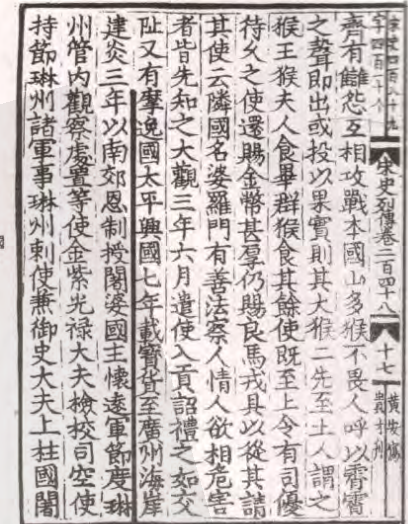 宋史列傳卷二百四十八
十七
齊有讎怨互相攻戰本國山多猴不畏人呼以霄霄
之聲即出或投以果實則其大猴二先至土人謂之
猴王猴夫人食畢群猴食其餘使既至上令有司優
待久之使還賜金幣甚厚仍賜良馬戎具以從其請
其使云隣國名婆羅門有善法察人情人欲相危害
者皆先知之大觀三年六月遣使入貢詔禮之如交
阯又有摩逸國太平興國七年載寶貨至廣州海岸
建炎三年以南郊恩制授闍婆國主懷遠軍節度琳
州管內觀察處置等使金紫光祿大夫檢校司空使
持節琳州諸軍事琳州刺使兼御史大夫上柱國闍